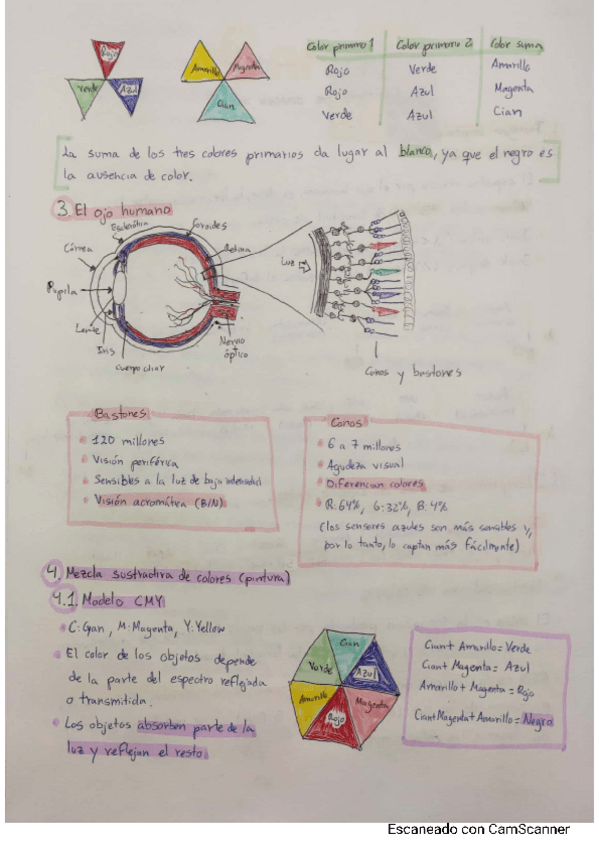 Rojo
Verde
Azul
Amarillo
Magenta
Cian
Color primario 1 Color primario 2 Color suma
Rojo Verde Amarillo
Rojo Azul Magenta
Verde Azul Cian
La suma de los tres colores primarios da lugar al blanco, ya que el negro es
la ausencia de color.
3. El ojo humano
Esclerótica
Coroides
Córnea
Retina
Luz
Pupila
Lente
Iris
Nervio
óptico
Cuerpo ciliar
Conos y bastones
Bastones
120 millones
Visión periférica
Sensibles a la luz de baja intensidad
Visión acromática (B/N)
Conos
6 a 7 millones
Agudeza visual
Diferencian colores
R:64%, G:32%, B:4%
(los sensores azules son más sensibles y,
por lo tanto, lo captan más fácilmente)
4. Mezcla sustractiva de colores (pintura)
4.1. Modelo CMY
C:Cyan, M:Magenta, Y:Yellow
El color de los objetos depende
de la parte del espectro reflejada
o transmitida.
Los objetos absorben parte de la
luz y reflejan el resto
Cian
Verde
Azul
Amarillo
Magenta
Rojo
Cian+ Amarillo= Verde
Cian+ Magenta= Azul
Amarillo+ Magenta= Rojo
Cian+Magenta+Amarillo= Negro
Escaneado con CamScanner